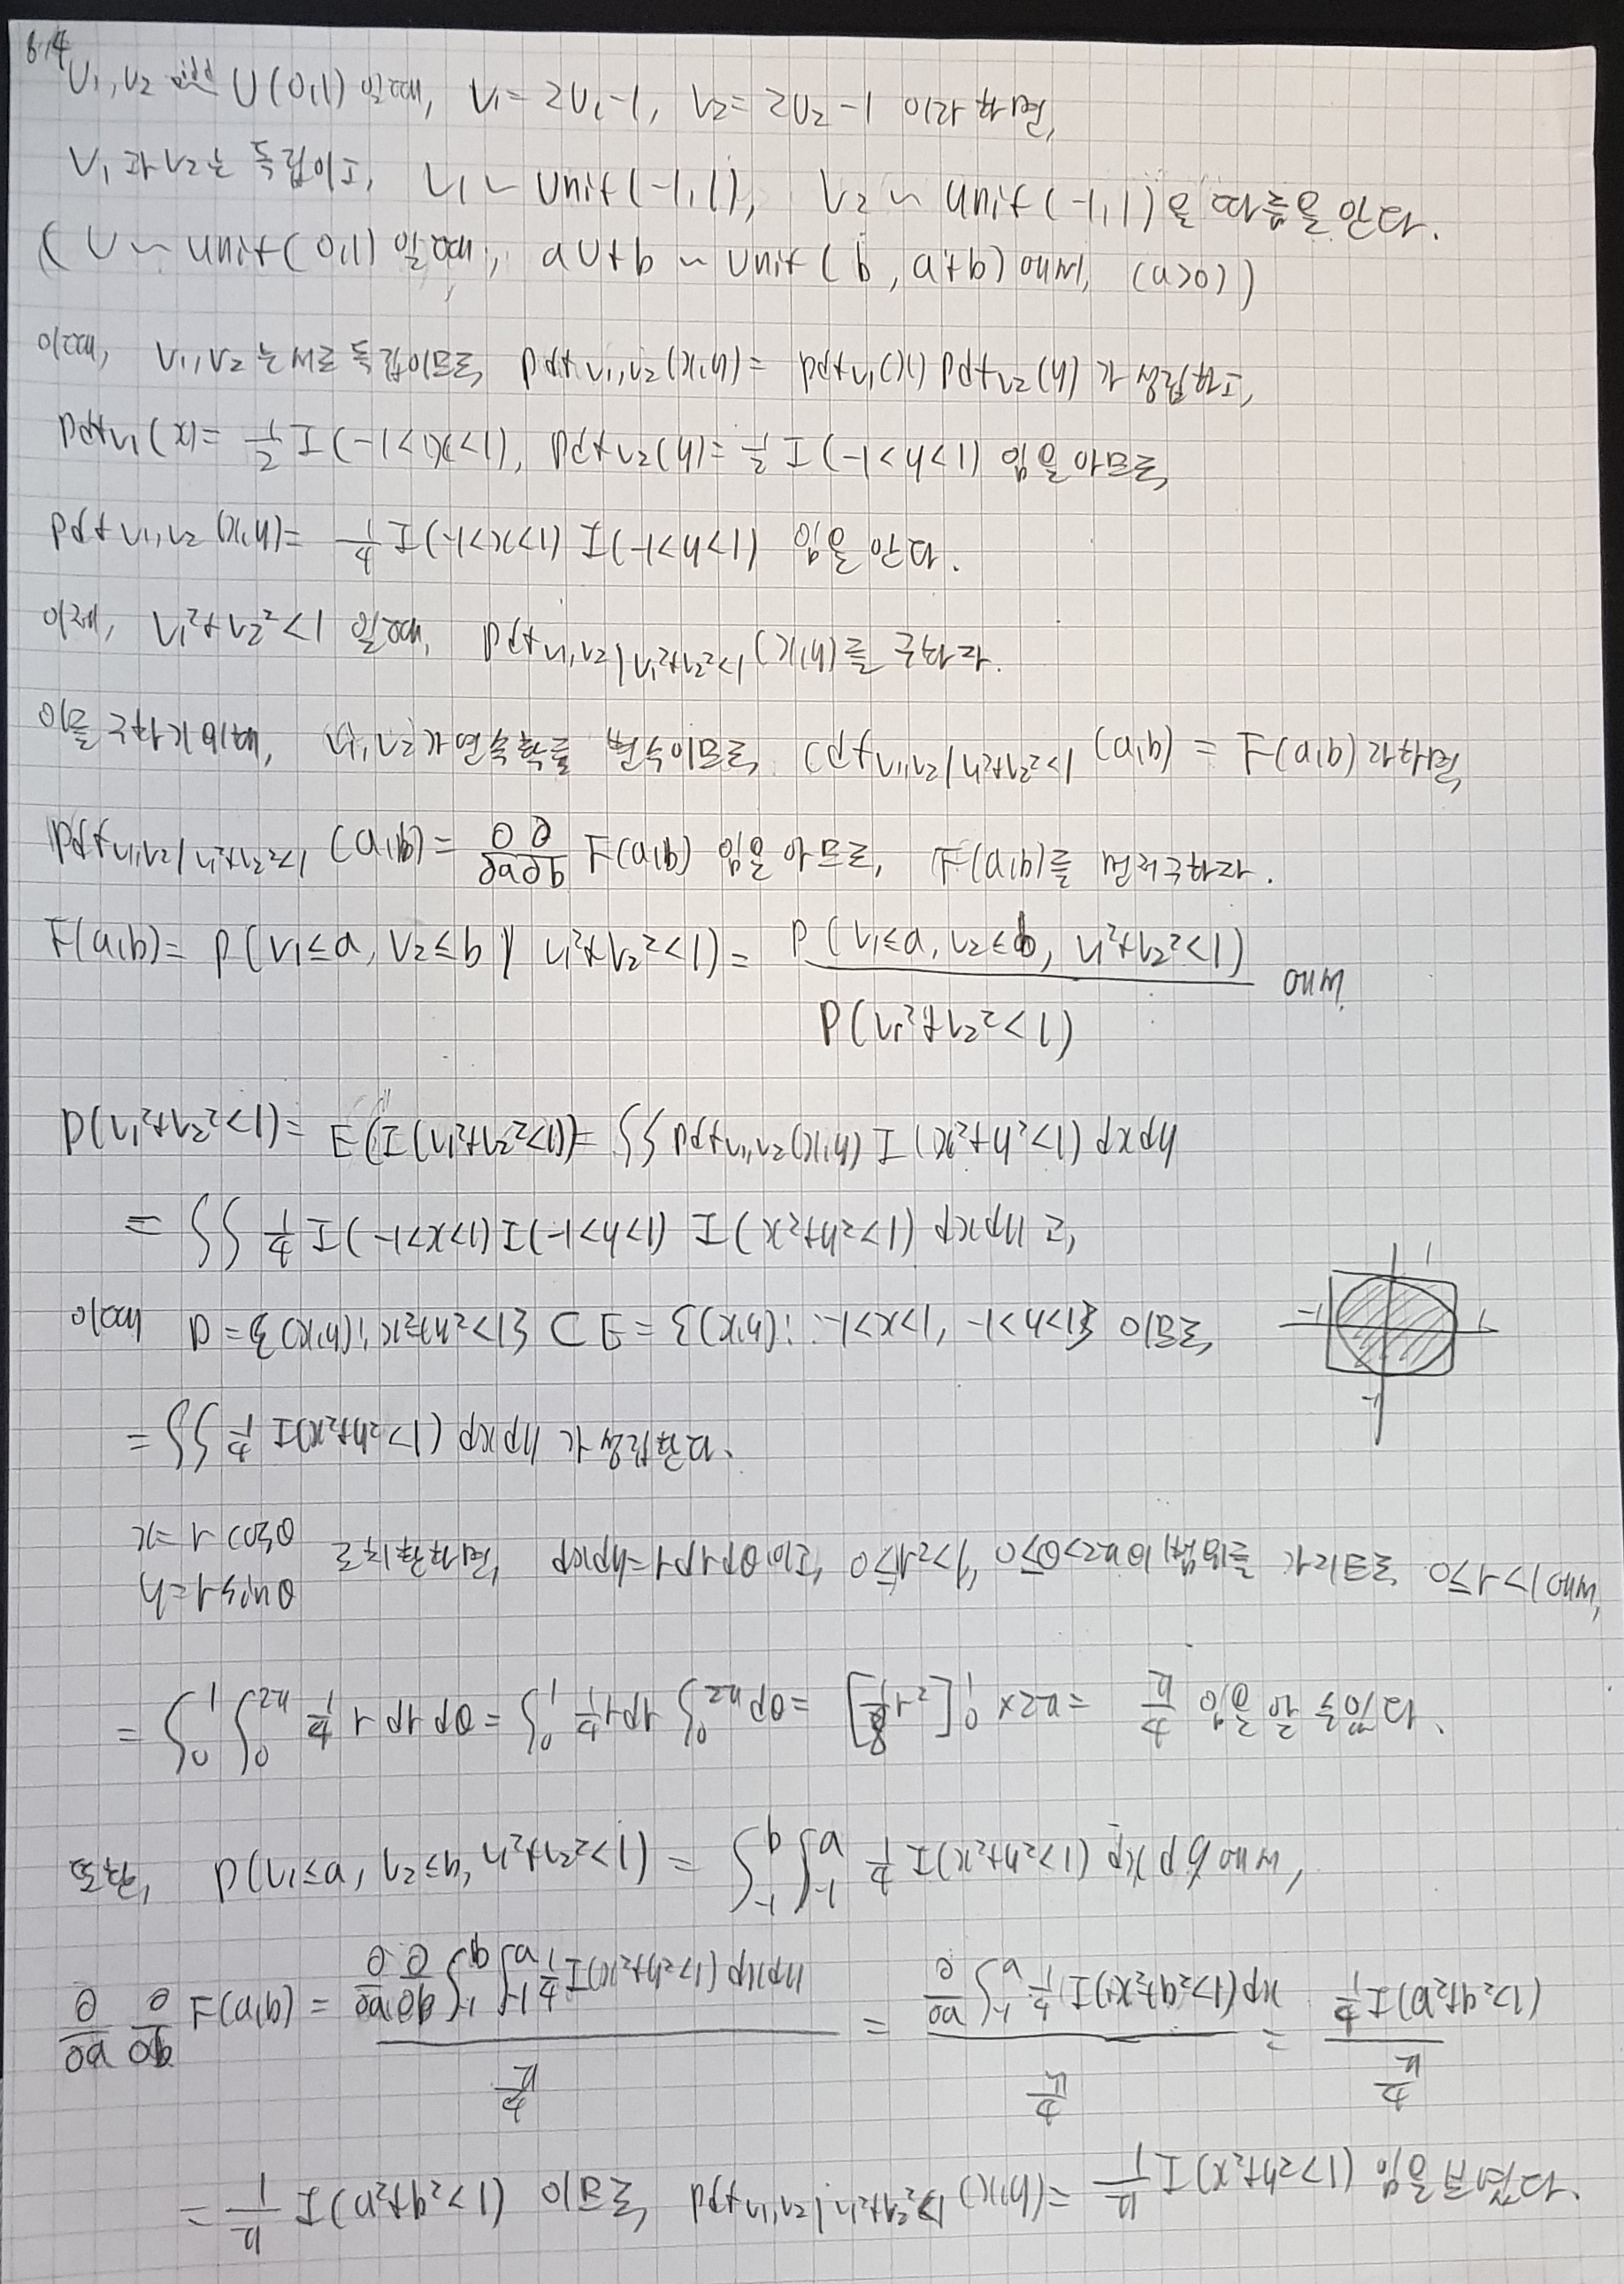 6.4
U₁, U₂ iid U(0,1) 일때, V₁ = 2U₁-1, V₂ = 2U₂-1 이라 하면,
V₁과 V₂는 독립이고, V₁ ~ Unif(-1,1), V₂ ~ Unif(-1,1)을 따름을 안다.
(U ~ Unif(0,1)일때, aU+b ~ Unif(b, a+b)에서, (a>0))
이때, V₁,V₂는 서로 독립이므로, pdf_{V₁,V₂}(x,y) = pdf_{V₁}(x) pdf_{V₂}(y)가 성립하고,
pdf_{V₁}(x) = 1/2 I(-1<x<1), pdf_{V₂}(y) = 1/2 I(-1<y<1) 임을 아므로,
pdf_{V₁,V₂}(x,y) = 1/4 I(-1<x<1) I(-1<y<1) 임을 안다.
이제, V₁²+V₂²<1 일때, pdf_{V₁,V₂|V₁²+V₂²<1}(x,y)를 구하자.
이를 구하기 위해, V₁,V₂가 연속확률 변수이므로, cdf_{V₁,V₂|V₁²+V₂²<1}(a,b) = F(a,b)라하면,
pdf_{V₁,V₂|V₁²+V₂²<1}(a,b) = ∂∂/∂a∂b F(a,b) 임을 아므로, F(a,b)를 먼저 구하자.
F(a,b) = P(V₁≤a, V₂≤b | V₁²+V₂²<1) = P(V₁≤a, V₂≤b, V₁²+V₂²<1) / P(V₁²+V₂²<1) 에서,
P(V₁²+V₂²<1) = E(I(V₁²+V₂²<1)) = ∫∫ pdf_{V₁,V₂}(x,y) I(x²+y²<1) dxdy
= ∫∫ 1/4 I(-1<x<1) I(-1<y<1) I(x²+y²<1) dxdy 고,
이때 D = {(x,y); x²+y²<1} ⊂ E = {(x,y); -1<x<1, -1<y<1} 이므로,
1
-1 1
-1
= ∫∫ 1/4 I(x²+y²<1) dxdy 가 성립한다.
x = r cosθ
y = r sinθ 로 치환하면, dxdy = r dr dθ 이고, 0≤r²<1, 0≤θ<2π 이 범위를 가지므로 0≤r<1 에서,
= ∫₀¹ ∫₀^{2π} 1/4 r dr dθ = ∫₀¹ 1/4 r dr ∫₀^{2π} dθ = [1/8 r²]₀¹ × 2π = π/4 임을 알 수 있다.
또한, P(V₁≤a, V₂≤b, V₁²+V₂²<1) = ∫₋₁^b ∫₋₁^a 1/4 I(x²+y²<1) dx dy 에서,
∂/∂a ∂/∂b F(a,b) = (∂/∂a ∂/∂b ∫₋₁^b ∫₋₁^a 1/4 I(x²+y²<1) dxdy) / (π/4) = (∂/∂a ∫₋₁^a 1/4 I(x²+b²<1) dx) / (π/4) = (1/4 I(a²+b²<1)) / (π/4)
= 1/π I(a²+b²<1) 이므로, pdf_{V₁,V₂|V₁²+V₂²<1}(x,y) = 1/π I(x²+y²<1) 임을 보였다.